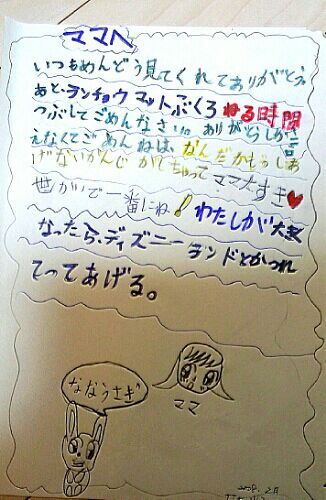 ママへ
いつもめんどう見てくれてありがとう。
あと、ランチョウマットぶくろねる時間
つぶしてごめんなさい。ありがとうしか言
えなくてごめんねは、なんだかもうしあ
げないかんじがしちゃってママ大すき♥
世がいで一番にね！わたしが大きく
なったら、ディズニーランドとかつれ
てってあげる。
ななうさぎ
ママ
2008. 2月